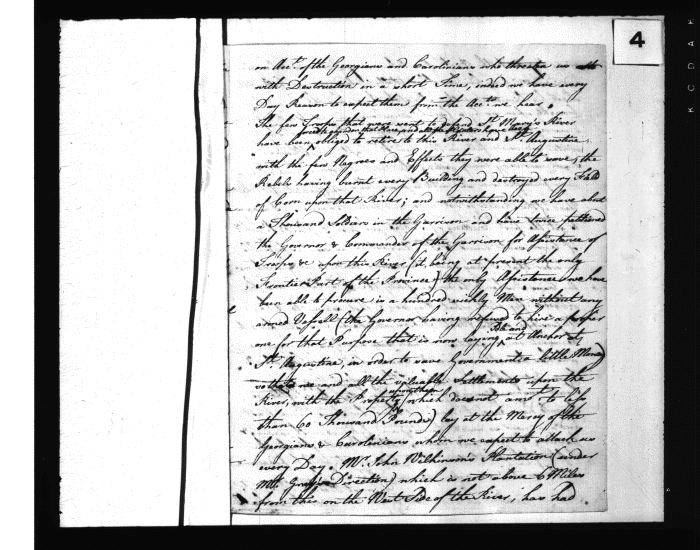 4
on Acct. of the Georgians and Carolinians who threaten us
with Destruction in a short Time, indeed we have every
Day Reason to expect them from the Acct. we hear.
The few Troops that were sent to defend St. Mary's River
forced to abandon that River and all the Planters have been
have been obliged to retire to this River and St. Augustine
with the few Negroes and Effects they were able to save; the
Rebels having burnt every Building and destroyed every Field
of Corn upon that River; and notwithstanding we have about
a Thousand Soldiers in the Garrison and have twice petitioned
the Governor & Commander of the Garrison for Assistance of
Troops &c upon this River (it being at present the only
Frontier Part of the Province) the only Assistance we have
been able to procure is a hundred sickly Men without any
armed Vessell (the Governor having refused to hire a proper
one for that Purpose that is now laying at Anchor at
St. Augustine, in order to save Government a little Money
so that we and all the valuable Settlements upon the
River, with the Property upon them which does not amt. to less
than 60 Thousand Pounds) lay at the Mercy of the
Georgians & Carolinians whom we expect to attack us
every Day. Mr. John Wilkinson's Plantation (under
Mr. Direction) which is not above 6 Miles
from this on the West Side of the River, has had
KODAK